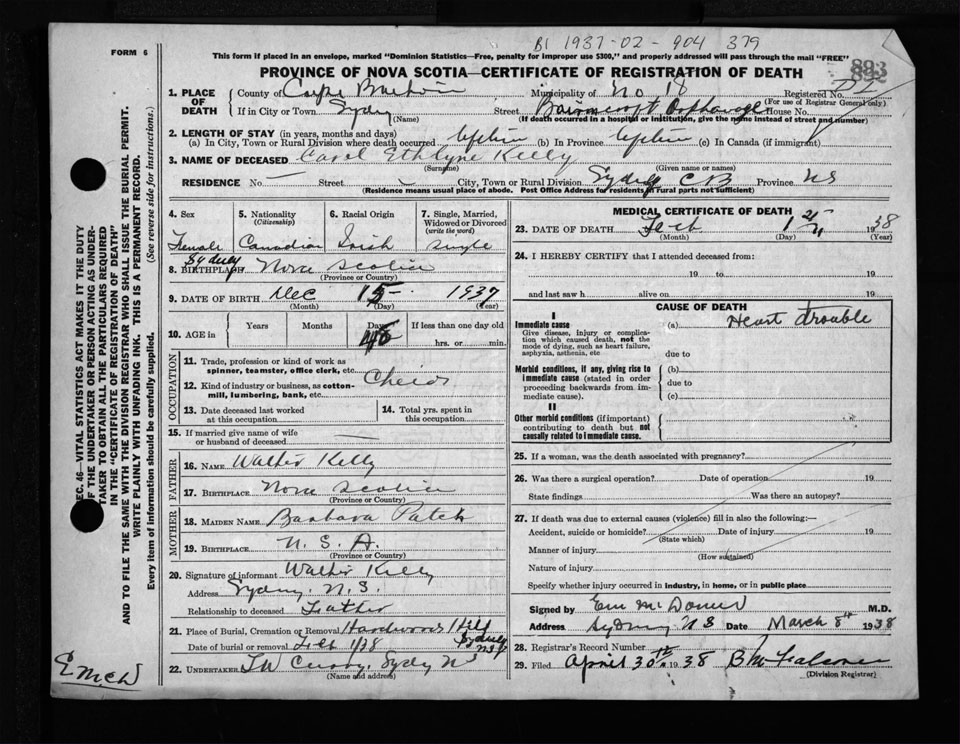 B1 1937-02-904 379
FORM 6
This form if placed in an envelope, marked "Dominion Statistics—Free, penalty for improper use $300," and properly addressed will pass through the mail "FREE"
893
PROVINCE OF NOVA SCOTIA—CERTIFICATE OF REGISTRATION OF DEATH
1. PLACE OF DEATH
County of Cape Breton Municipality of No 18 Registered No.
(For use of Registrar General only)
If in City or Town Sydney Street Orphanage House No.
(Name) (If death occurred in a hospital or institution, give the name instead of street and number)
2. LENGTH OF STAY (in years, months and days)
(a) In City, Town or Rural Division where death occurred (b) In Province (c) In Canada (if immigrant)
3. NAME OF DECEASED Carol Ethlyne Kelly
(Surname) (Given name or names)
RESIDENCE No. — Street City, Town or Rural Division Sydney CB Province NS
(Residence means usual place of abode. Post Office Address for residents in rural parts not sufficient)
4. Sex Female
5. Nationality (Citizenship) Canadian
6. Racial Origin Irish
7. Single, Married, Widowed or Divorced (write the word) single
8. BIRTHPLACE Sydney Nova Scotia
(Province or Country)
9. DATE OF BIRTH Dec 15 1937
(Month) (Day) (Year)
10. AGE in Years Months Days 46 If less than one day old
hrs. or min.
OCCUPATION
11. Trade, profession or kind of work as spinner, teamster, office clerk, etc.
12. Kind of industry or business, as cotton-mill, lumbering, bank, etc.
13. Date deceased last worked at this occupation
14. Total yrs. spent in this occupation
15. If married give name of wife or husband of deceased —
FATHER
16. NAME Walter Kelly
17. BIRTHPLACE Nova Scotia
(Province or Country)
MOTHER
18. MAIDEN NAME Barbara Patch
19. BIRTHPLACE
(Province or Country)
20. Signature of informant Walter Kelly
Address Sydney. N.S.
Relationship to deceased Father
21. Place of Burial, Cremation or Removal Hardwood Hill Sydney NS
Date of burial or removal Feb 1/38
22. UNDERTAKER Sydney NS
(Name and address)
MEDICAL CERTIFICATE OF DEATH
23. DATE OF DEATH Feb 1st 1938
(Month) (Day) (Year)
24. I HEREBY CERTIFY that I attended deceased from:
19 to 19
and last saw h alive on 19
CAUSE OF DEATH
I
Immediate cause (a) Heart Trouble
Give disease, injury or complication which caused death, not the mode of dying, such as heart failure, asphyxia, asthenia, etc
due to
Morbid conditions, if any, giving rise to immediate cause (stated in order proceeding backwards from immediate cause).
(b)
due to
(c)
II
Other morbid conditions (if important) contributing to death but not causally related to immediate cause.
25. If a woman, was the death associated with pregnancy?
26. Was there a surgical operation? Date of operation 19
State findings Was there an autopsy?
27. If death was due to external causes (violence) fill in also the following:—
Accident, suicide or homicide? Date of injury 19
(State which)
Manner of injury
(How sustained)
Nature of injury
Specify whether injury occurred in industry, in home, or in public place
Signed by M.D.
Address Sydney NS Date March 8th 1938
28. Registrar's Record Number
29. Filed April 30th 1938
(Division Registrar)
SEC. 46—VITAL STATISTICS ACT MAKES IT THE DUTY
OF THE UNDERTAKER OR PERSON ACTING AS UNDERTAKER TO OBTAIN ALL THE PARTICULARS REQUIRED
IN THE "CERTIFICATE OF REGISTRATION OF DEATH"
AND TO FILE THE SAME WITH THE DIVISION REGISTRAR WHO SHALL ISSUE THE BURIAL PERMIT.
WRITE PLAINLY WITH UNFADING INK. THIS IS A PERMANENT RECORD.
Every item of information should be carefully supplied. (See reverse side for instructions.)